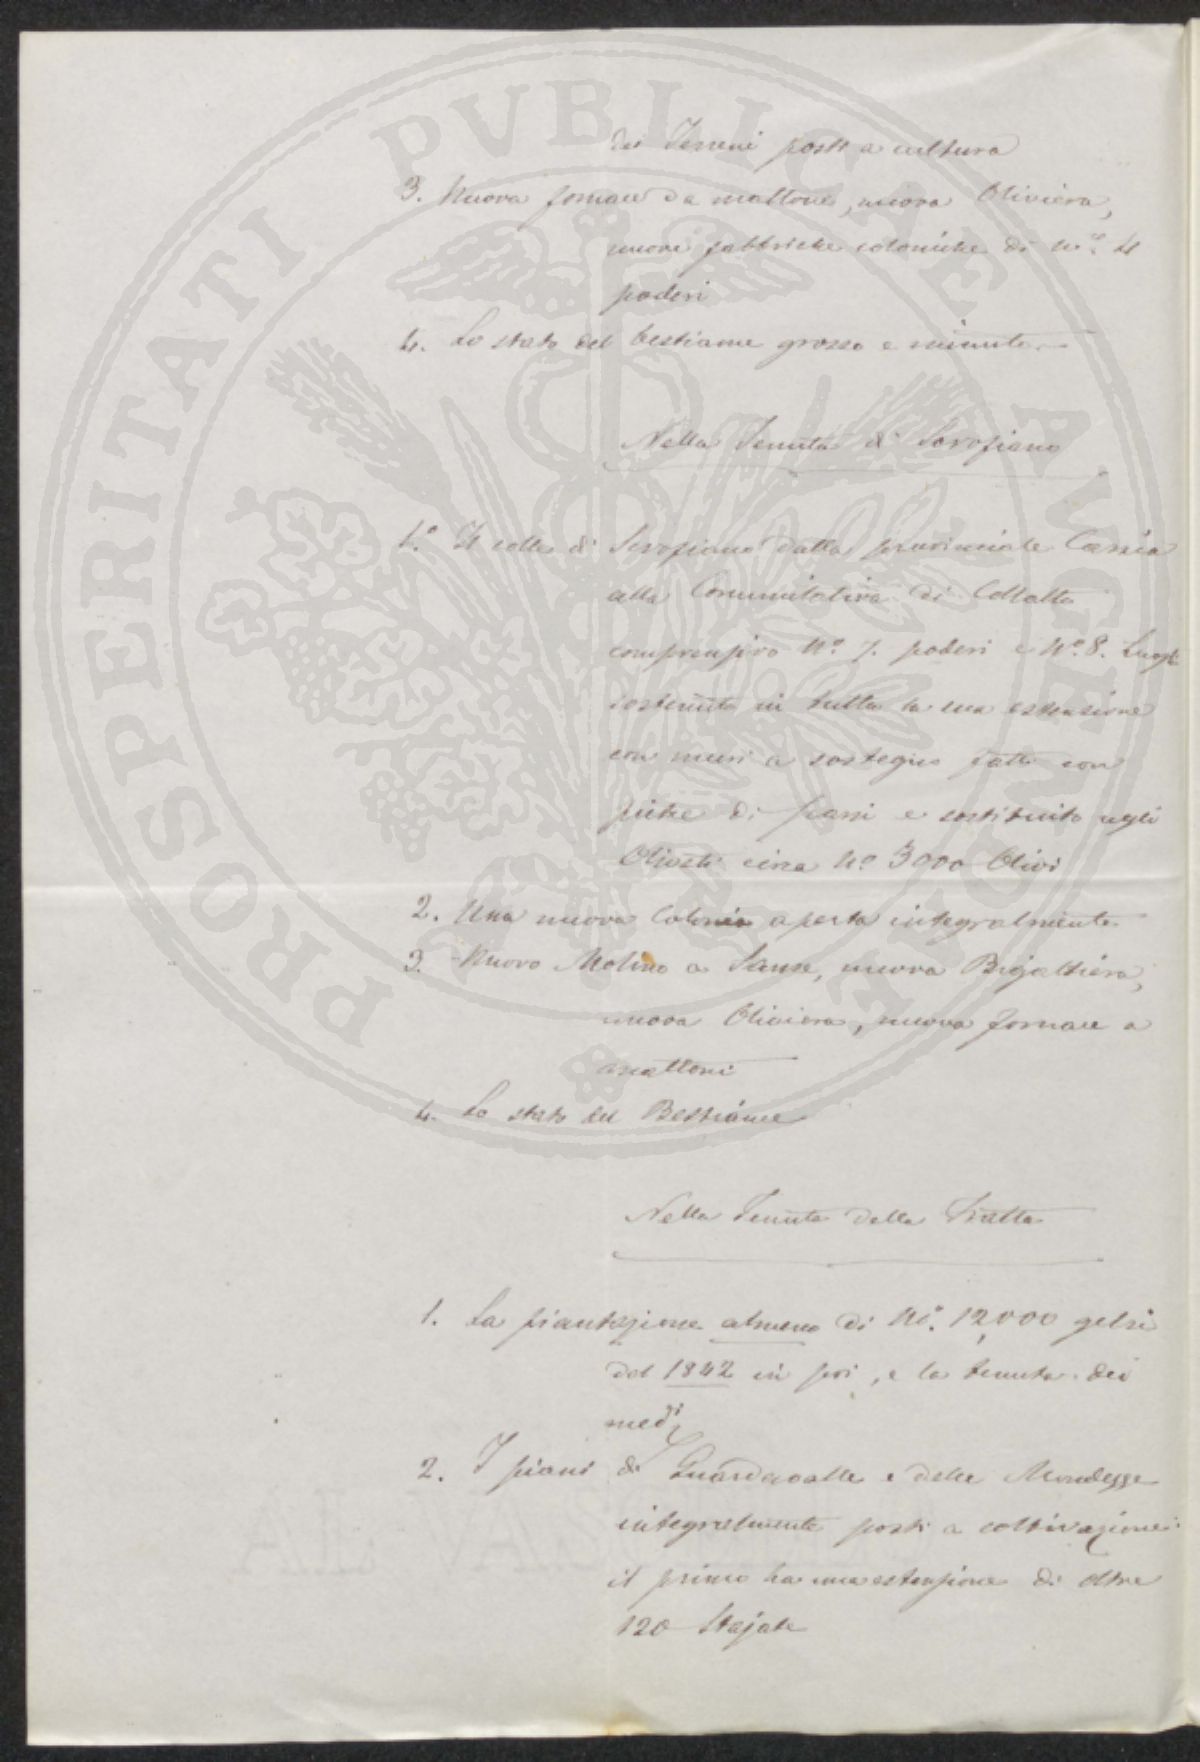 dei Terreni posti a cultura
3. Nuova fornace da mattoni, nuova Oliviera,
nuove fabbriche coloniche di n.º 4
poderi
4. Lo stato del bestiame grosso e minuto
Nella Tenuta di Serofiano
1.º Il colle di Serofiano dalla provinciale Cassia
alla Comunitativa di Collalto
comprensivo Nº 7. poderi e Nº 8. Luoghi
sostenuto in tutta la sua estensione
con muri a sostegno fatti con
pietre di e sostituito agli
Olivati circa Nº 3000 Olivi
2. Una nuova Colonia aperta integralmente
3. Nuovo Molino a Sanse, nuova Bigattiera,
nuova Oliviera, nuova fornace a
mattoni
4. Lo stato del Bestiame
Nella Tenuta della Fratta
1. La piantazione almeno di Nº. 12,000 gelsi
dal 1842 in poi, e la tenuta dei
medⁱ
2. I piani di Guardavalle e delle
integralmente posti a coltivazione:
il primo ha una estensione di oltre
120 Stajate
PROSPERITATI PVBLICAE AVGENDAE